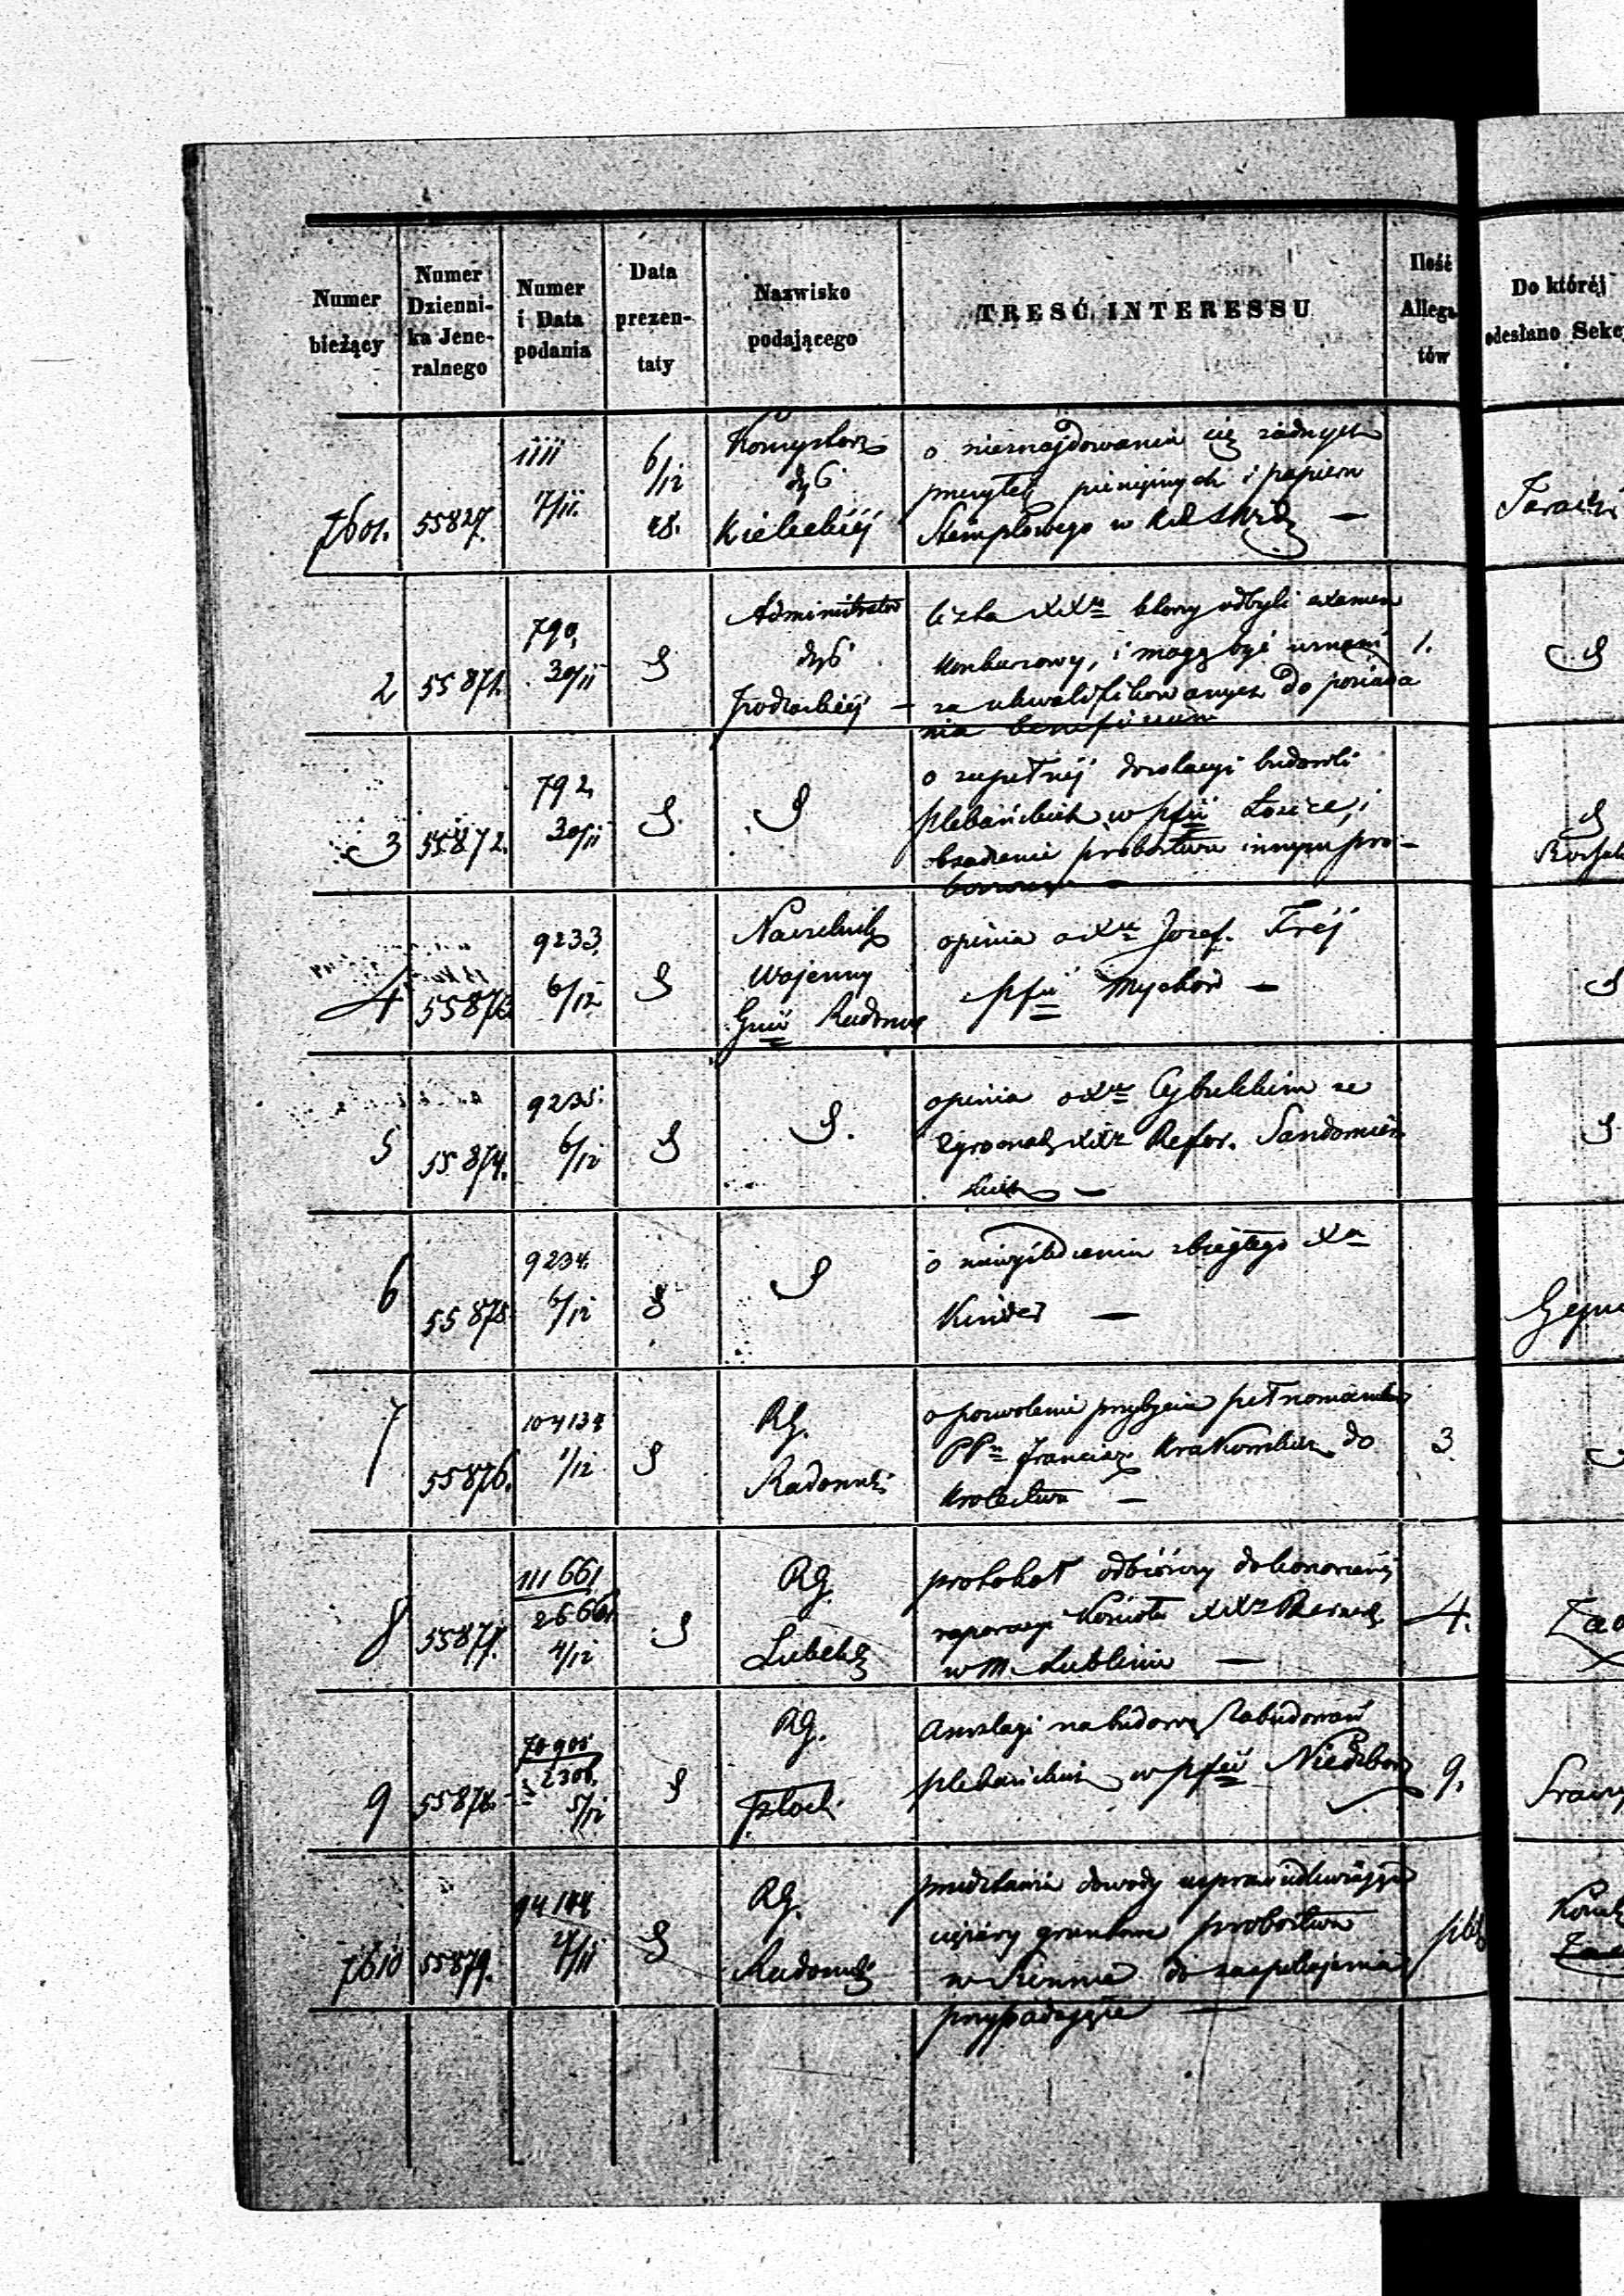 Numer
bieżący
Numer
Dzienni-
ka Jene-
ralnego
Numer
i Data
podania
Data
prezen-
taty
Nazwisko
podającego
TRESĆ INTERESSU
Ilość
Allega
tów
Do któréj
odesłano Sekc
7601.
55827.
1111
7/11.
6/12
28.
Konsystorz
dyć
Kieleckiéj
o nieznajdowaniu się żadnych
przesyłek pieniężnych i papieru
Stemplowego w
2
55871.
790,
30/11
S
Administrator
dyć
Podlaskiéj
liczba XXży którzy odbyli examen
konkursowy, i mogą być uznani
za ukwalifikowanych do posiada
nia beneficium
1.
S
3
55872.
792,
30/11
S
S
o zupełnéj dezolacyi budowli
plebańskich w pfii Łosice, i
obsadzenie probostwa innym pro-
boszczem
S
4
55873.
9233,
6/12
S
Naczelnik
Wojenny
Gnii Radoms
opinia o Xu Józef. Fréj
pfii Mychów
S
5
55874.
9235.
6/12
S
S.
opinia o Xu Cybulskim ze
Zgromadz XXży Refor. Sandomier
skich
S
6
55875
9234.
6/12
S
S
o zbiegłego Xa
Kinder
7
55876.
104134
1/12
S
RG.
Radomski
o pozwolenie przybycia pełnomocnika
PPn Francisz. Krakowskich do
Królestwa
3.
8
55877.
111661
26661
4/12
S
RG.
Lubelsk
protokół odbiorczy dokonanéj
reperacyi Kościoła XXży Bernard.
w m. Lublinie
4.
9
55878.
70905
2306.
5/12
S
RG.
Płocki
Anszlagi na budowę Zabudowań
plebańskich w pfii Niedzborz
9.
7610
55879.
94144
27/11
S
RG.
Radomski
przedstawia dowody usprawiedliwiające
ciężary gruntowe probostwa
w Siennie do zaspokojenia
przypadające
plik